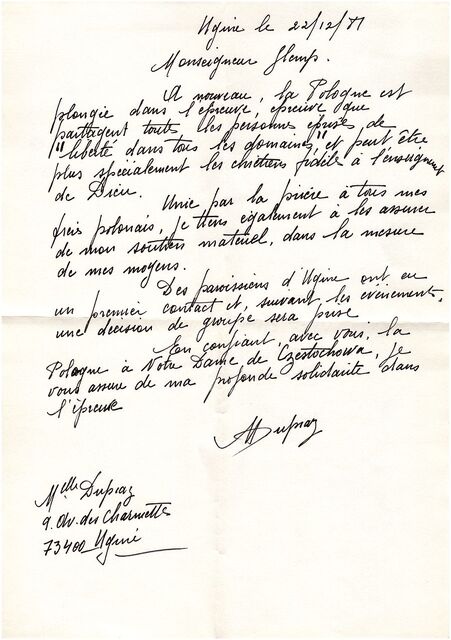 Ugine le 22/12/81
Monseigneur Glemp.
A nouveau, la Pologne est
plongée dans l'épreuve, épreuve que
partagent toutes les personnes éprises de
"liberté" dans tous les domaines, et peut être
plus spécialement les chrétiens fidèle à l'enseignement
de Dieu.
Unie par la prière à tous mes
frères polonais, je tiens également à les assurer
de mon soutien matériel, dans la mesure
de mes moyens.
Des paroissiens d'Ugine ont eu
un premier contact et, suivant les événements,
une décision de groupe sera prise
En confiant, avec vous, la
Pologne à Notre Dame de Czestochowa, je
vous assure de ma profonde solidarité dans
l'épreuve
MDupraz
Melle Dupraz
9. Av. des Charmettes
73400 Ugine